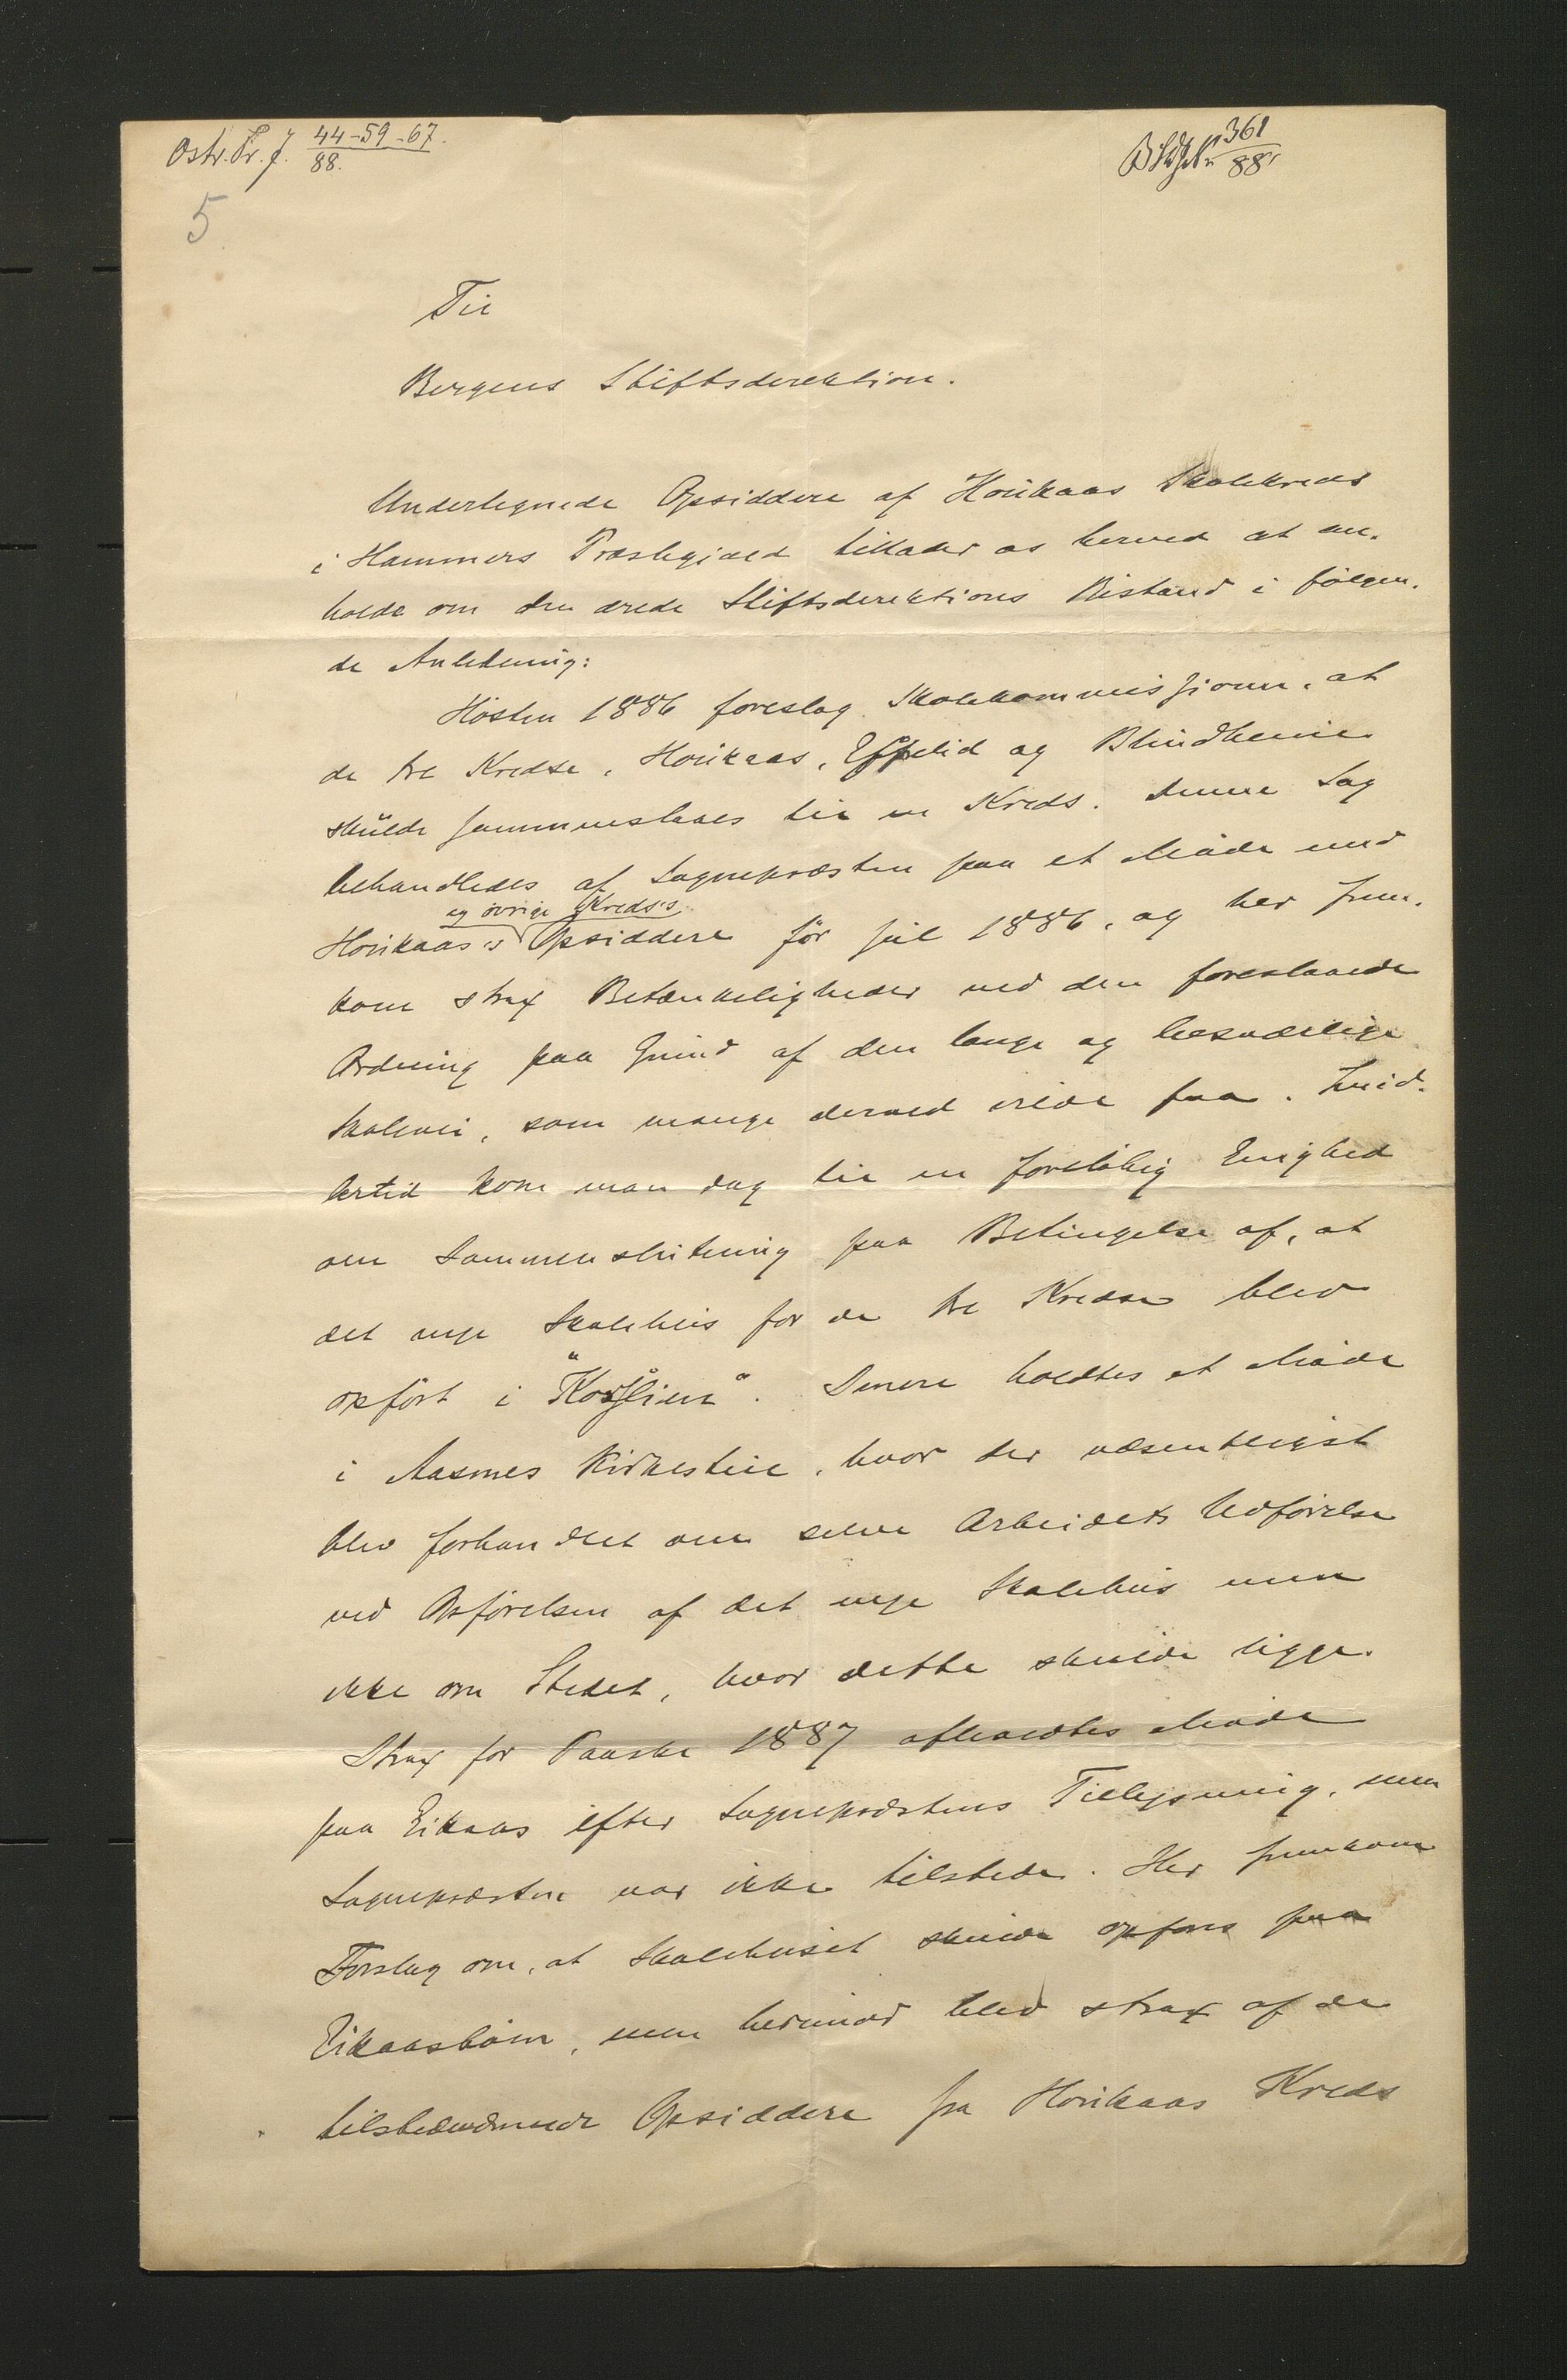 Ostr. Pr. J. 44-59-67/88.
361/88
5
Til
Bergens Stiftsdirektion.
Undertegnede Opsiddere af Houkaas Skolekreds
i Hammers Præstegjæld tillader os herved at an-
holde om den ærede Stiftsdirektions Bistand i følgen-
de Anledning:
Høsten 1886 foreslog Skolekommissionen, at
de tre Kredse, Houkaas, Espelid og Blindheim
skulde sammenslaaes til en Kreds. Denne Sag
behandledes af Sognepræsten paa et Møde med
og øvrige Kreds's
Houkaas's Opsiddere før Jul 1886, og her frem-
kom strax Betænkeligheder ved den foreslaaede
Ordning paa Grund af den lange og besværlige
Skolevei, som mange derved vilde faa. Imid-
lertid kom man dog til en foreløbig Enighed
om Sammenslutning paa Betingelse af, at
det nye Skolehus for de tre Kredse blev
opført i "Kosslien". Senere holdtes et Møde
i Aasnes Kirkestue, hvor der væsentligst
blev forhandlet om selve Arbeidets Udførelse
ved Opførelsen af det nye Skolehus men
ikke om Stedet, hvor dette skulde ligge.
Strax før Paaske 1887 afholdtes Møde
paa Eikaas efter Sognepræstens Tillysning, men
Sognepræsten var ikke tilstede. Her fremkom
Forslag om, at Skolehuset skulde opføres paa
Eikaasbøen, men herimod blev strax af de
tilstedeværende Opsiddere fra Houkaas Kreds